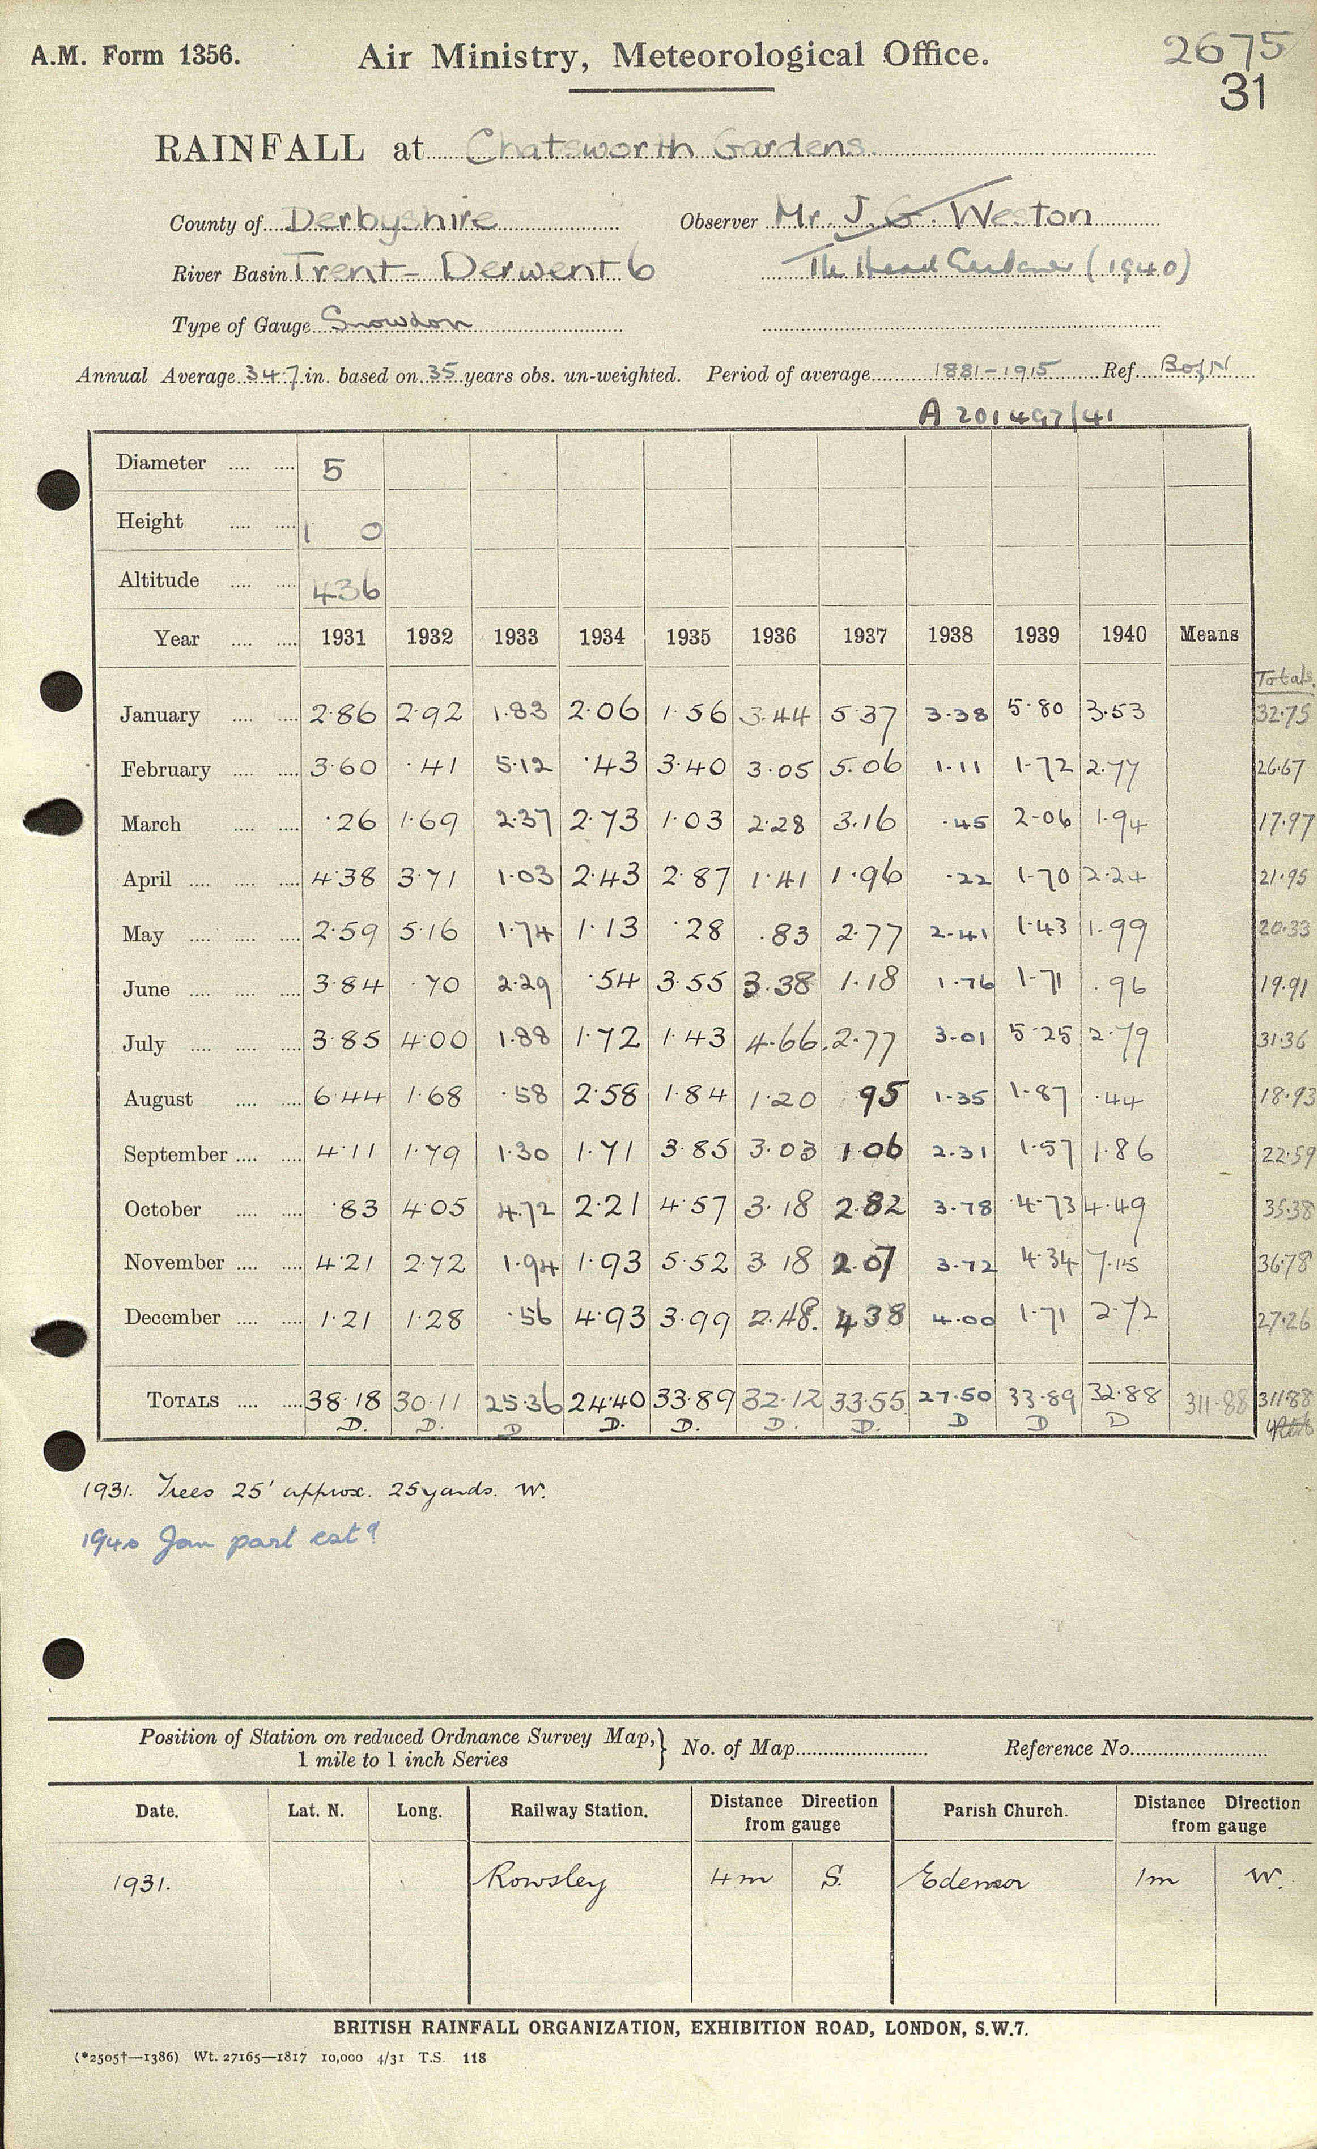 A.M. Form 1356. Air Ministry, Meteorological Office. 2675
31
RAINFALL at Chatsworth Gardens.
County of Derbyshire Observer Mr. J. G. Weston
River Basin Trent - Derwent 6 The Head Gardener (1940)
Type of Gauge Snowdon
Annual Average 34.7 in. based on 35 years obs. un-weighted. Period of average 1881-1915 Ref. BofN
A 201497/41
Diameter 5
Height 1 0
Altitude 436
Year 1931 1932 1933 1934 1935 1936 1937 1938 1939 1940 Means
Totals.
January 2.86 2.92 1.83 2.06 1.56 3.44 5.37 3.38 5.80 3.53 32.75
February 3.60 .41 5.12 .43 3.40 3.05 5.06 1.11 1.72 2.77 26.67
March .26 1.69 2.37 2.73 1.03 2.28 3.16 .45 2.06 1.94 17.97
April 4.38 3.71 1.03 2.43 2.87 1.41 1.96 .22 1.70 2.24 21.95
May 2.59 5.16 1.74 1.13 .28 .83 2.77 2.41 1.43 1.99 20.33
June 3.84 .70 2.29 .54 3.55 3.38 1.18 1.76 1.71 .96 19.91
July 3.85 4.00 1.88 1.72 1.43 4.66 2.77 3.01 5.25 2.79 31.36
August 6.44 1.68 .58 2.58 1.84 1.20 .95 1.35 1.87 .44 18.93
September 4.11 1.79 1.30 1.71 3.85 3.03 1.06 2.31 1.57 1.86 22.59
October .83 4.05 4.72 2.21 4.57 3.18 2.82 3.78 4.73 4.49 35.38
November 4.21 2.72 1.94 1.93 5.52 3.18 2.07 3.72 4.34 7.15 36.78
December 1.21 1.28 .56 4.93 3.99 2.48. 4.38 4.00 1.71 2.72 27.26
TOTALS 38.18 30.11 25.36 24.40 33.89 32.12 33.55 27.50 33.89 32.88 311.88 311.88
D. D. D D. D. D. D. D D D
1931. Trees 25' approx. 25 yards. W.
1940 Jan part est?
Position of Station on reduced Ordnance Survey Map, } No. of Map Reference No.
1 mile to 1 inch Series
Date. Lat. N. Long. Railway Station. Distance Direction from gauge Parish Church. Distance Direction from gauge
1931. Rowsley 4m S. Edensor 1m W.
BRITISH RAINFALL ORGANIZATION, EXHIBITION ROAD, LONDON, S.W.7.
(*2505†—1386) Wt. 27165—1817 10,000 4/31 T.S. 118